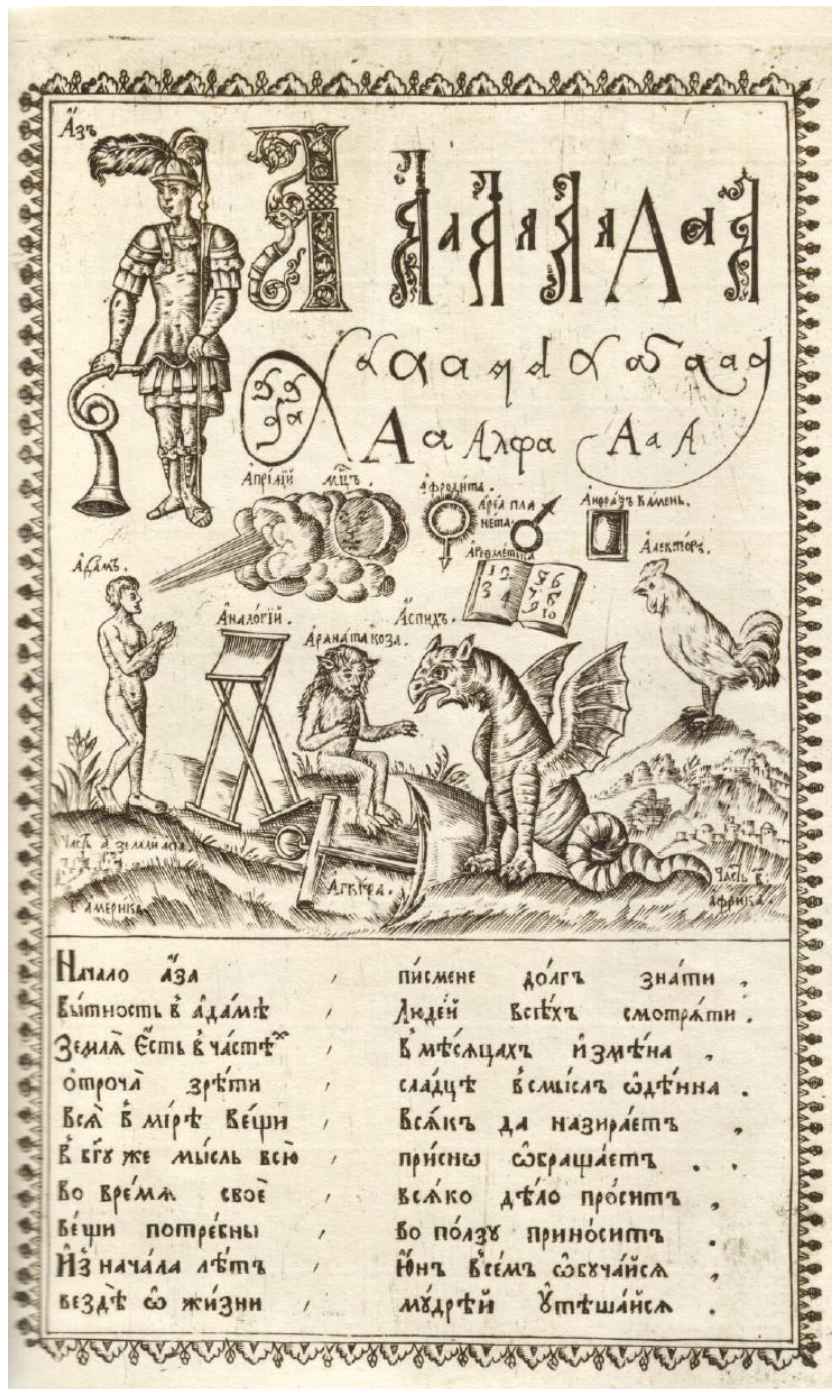 А́зъ
А
А а А а А а А а А
а а а а а а а а а а а
А а Алфа А а А
А҆прі́лїй мцъ.
А҆фроди́та.
А҆ре́а плане́та
А҆нѳра́ѯ ка́мень.
А҆риѳме́тїка
А҆ле́кторъ.
1 2 3 4 5 6 7 8 9 10
А҆да́мъ.
А҆нало́гїй.
А҆́спидъ.
А҆рана́та коза̀.
Часть а҃ земли а҆сїа
А́гкѵра.
Часть в҃
а҆́фрика.
а҆мерика.
Нача́ло а҆́за , пи́смене до́лгъ зна́ти ,
Бы́тность в̾ а҆да́мѣ , Люде́й всѣ́хъ смотрѧ́ти .
Землѧ̀ є҆́сть в̾ ча́стѣхъ , в̾ мѣ́сѧцахъ и҆змѣ́на ,
о҆троча̀ зрѣ́ти сла́дцѣ в̾смы́слъ ѡ҆дѣ́нна .
Всѧ̀ в̾ мі́рѣ ве́щи , всѧ́къ да назира́етъ ,
в̾ бг҃у же мы́сль всю̀ , при́снѡ ѡ҆браща́етъ .
Во вре́мѧ своѐ , всѧ́ко дѣ́ло про́ситъ ,
ве́щи потре́бны , во по́лзу прино́ситъ .
И҆з̾ нача́ла лѣ́тъ , ю҆́нъ в̾се́мъ ѡ҆буча́йсѧ ,
вездѣ̀ ѡ҆ жи́зни , му́дрѣй ᲂу҆тѣша́йсѧ .